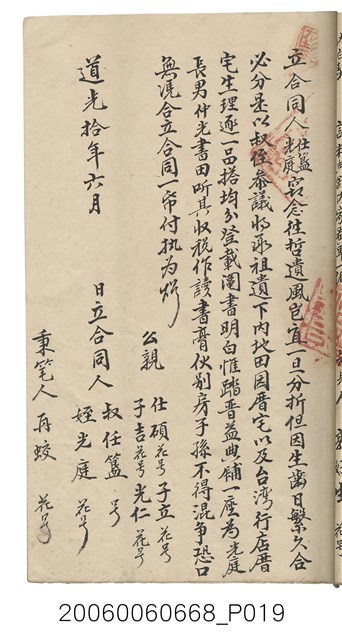 立合同人任籃光庭窃念往哲遺風豈宜一旦分折但因生齒日繁久合
必分是以叔侄參議将承祖遺下内地田园厝宅以及台湾行店厝
宅生理逐一品搭均分登載圖書明白惟踏晋益典舖一座为光庭
長男仲光書田听其收税作讀書膏伙别房子孫不得混争恐口
無凴合立合同一帋付执为炤
公親
仕碩花号子立花号
子吉花号光仁花号
道光拾年六月
日立合同人
叔任籃号
姪光庭花号
秉笔人再蛟花号
20060060668_P019